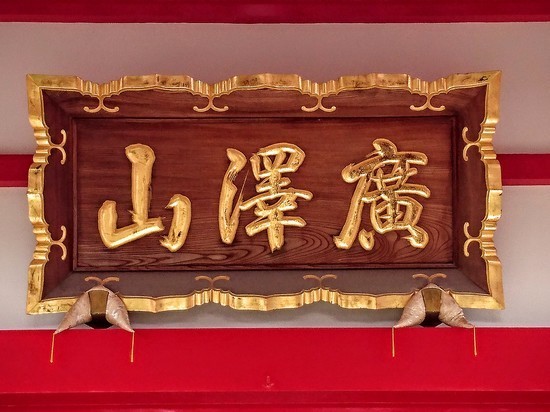 廣澤山